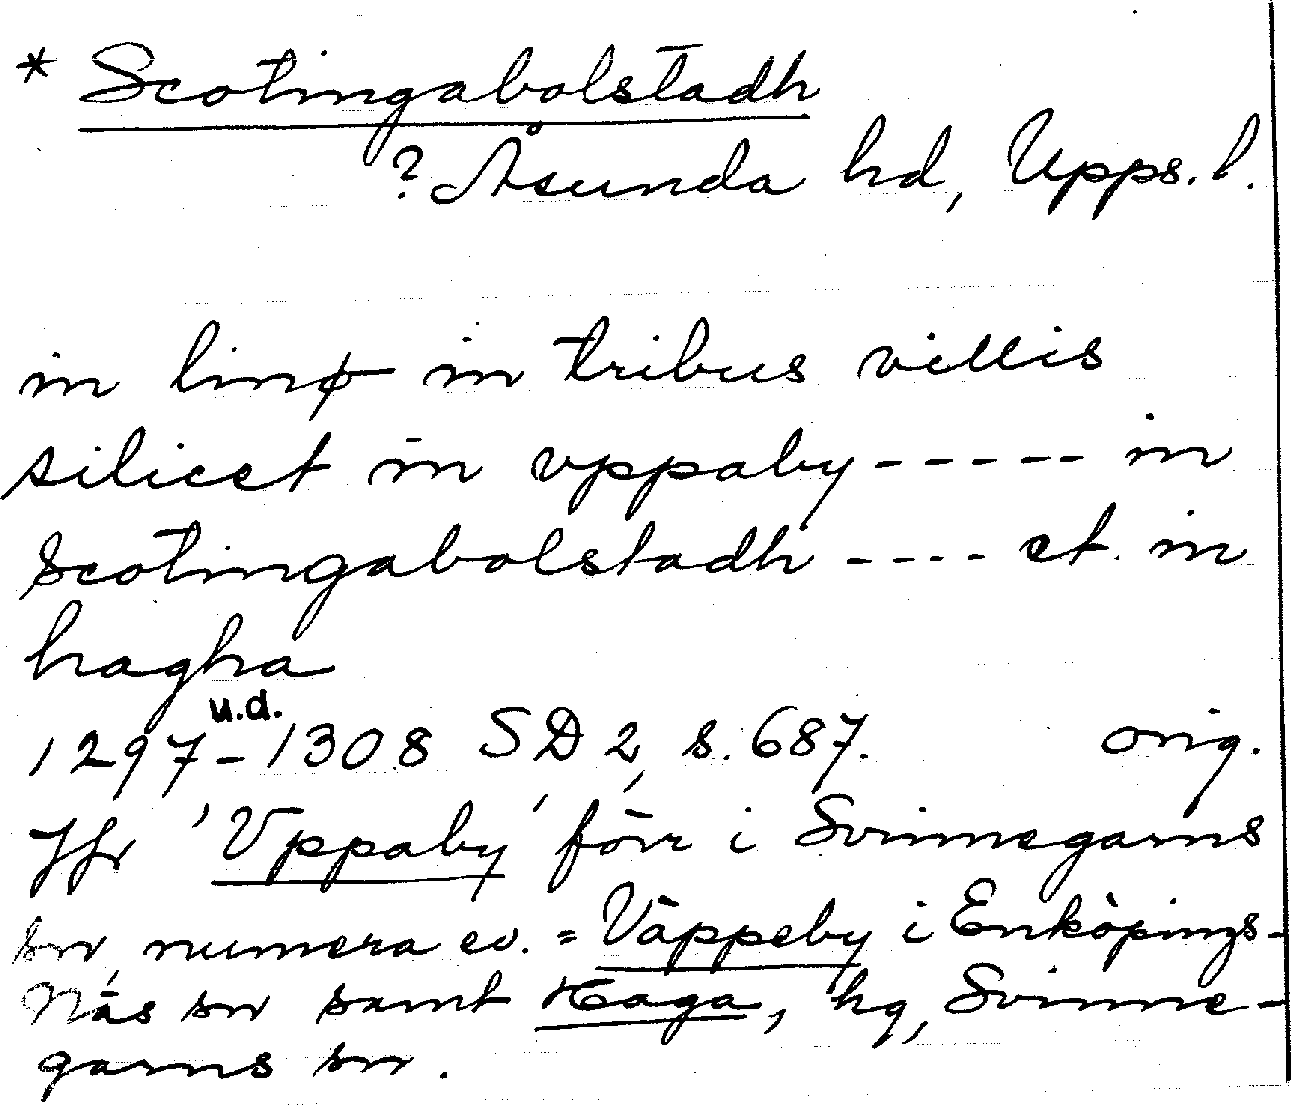 * Scotingabolstadh
? Åsunda hd, Upps. l.
in linꝑ in tribus villis
silicet in vppaby ----- in
Scotingabolstadh ---- et in
hagha
1297 - 1308 u.d. SD 2, s. 687. orig.
Jfr 'Vppaby' förr i Svinnegarns
sn, numera ev. = Väppeby i Enköpings-
Näs sn samt Haga, hg, Svinne-
garns sn.